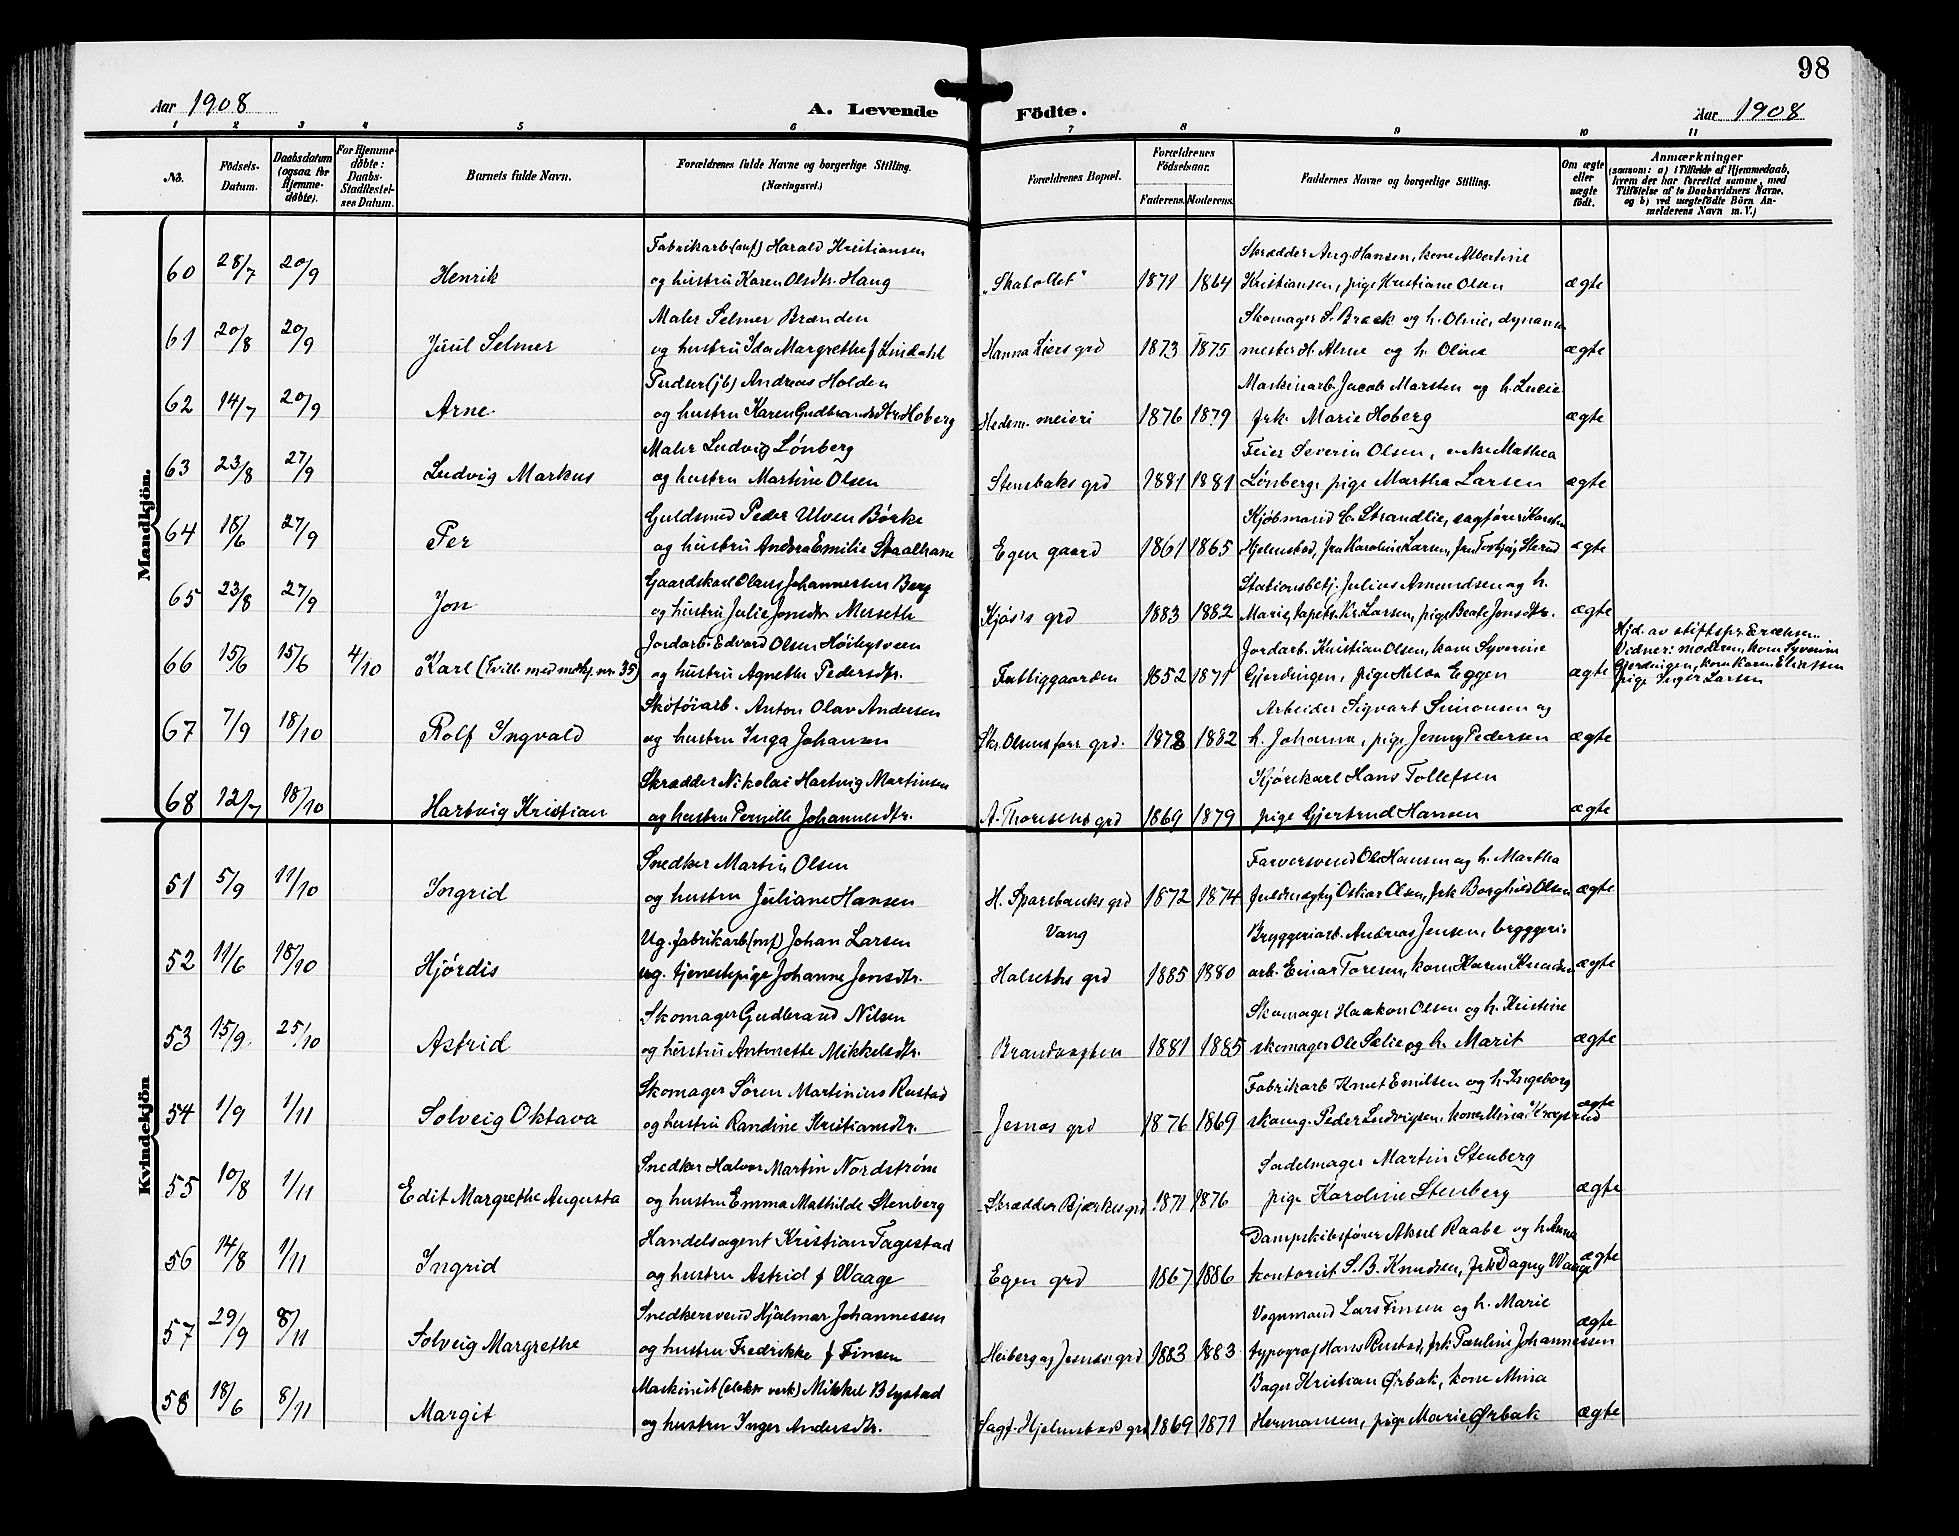 98
Aar 1908
A. Levende Födte.
Aar 1908
1 2 3 4 5 6 7 8 9 10 11
No.
Födsels-Datum.
Daabsdatum (ogsaa for Hjemmedöbte).
For Hjemmedöbte: Daabs-Stadfæstelses Datum.
Barnets fulde Navn.
Forældrenes fulde Navne og borgerlige Stilling. (Næringsvei.)
Forældrenes Bopæl.
Forældrenes Födselsaar.
Faderens. Moderens.
Faddernes Navne og borgerlige Stilling.
Om ægte eller uægte födt.
Anmærkninger
(saasom: a) i Tilfælde af Hjemmedaab, hvem der har forrettet samme, med Tilföielse af to Daabsvidners Navne, og b) ved uægtefödte Börn Anmelderens Navn m. V.)
Mandkjön.
Fabrikarb (mf) Harald Kristiansen
Skrædder Aug. Hansen, kone Albertine
60 28/7 20/9 Henrik og hustru Karen Olsdtr. Haug "Skabollet" 1871 1864 Kristiansen, pige Kristiane Olsen ægte
Maler Selmer Brænden
Skomager S. Bræk og h. Oline, dynamit
61 20/8 20/9 Juul Selmer og hustru Ida Margrethe f Lindahl Hanna Liers grd 1873 1875 mester H. Alme og h. Oline ægte
Pudser (jb) Andreas Holden
Maskinarb. Jacob Marsten og h. Lucie
62 14/7 20/9 Arne og hustru Karen Gudbrandsdtr. Hoberg Hedem. meieri 1876 1879 frk. Marie Hoberg ægte
Maler Ludvig Lønberg
Feier Severin Olsen, enke Mathea
63 23/8 27/9 Ludvig Markus og hustru Martine Olsen Stensbaks grd 1881 1881 Lønberg, pige Martha Larsen ægte
Guldsmed Peder Ulven Børke
Kjøbmand C. Strandlie, sagfører Karsten
64 18/6 27/9 Per og hustru Andrea Emilie Staalhane Egen gaard 1861 1865 Hjelmstad, fru Karoline Larsen, fru Sterud ægte
Gaardskarl Olaus Johannessen Berg
Stationsbetj. Julius Amundsen og h.
65 23/8 27/9 Jon og hustru Julie Jonsdtr. Messeth Kjøs's grd 1883 1882 Marie, tapets. Kr. Larsen, pige Beate Jonsdtr. ægte
Jordarb. Edvard Olsen Høibysveen
Jordarb. Kristian Olsen, kone Syverine
66 15/6 15/6 4/10 Karl (Tvilling med mdkj. nr. 35) og hustru Agnethe Pedersdtr. Fattiggaarden 1852 1871 Gjerdingen, pige Helga Eggen ægte
Hjd. av stiftspr. Erichsen.
Vidner: moderen, kone Syverine
Gjerdingen, kone Karen Eliassen
pige Inger Larsen
Skotøiarb. Anton Olav Andersen
Arbeider Sigvart Simonsen og
67 7/9 18/10 Rolf Ingvald og hustru Inga Johansen Skr. Olsens grd. 1878 1882 h. Johanna, pige Jenny Pedersen ægte
Skrædder Nikolai Hartvig Martinsen
Kjørekarl Hans Tollefsen
68 12/7 18/10 Hartvig Kristian og hustru Pernille Johannesdtr. A. Thoresens grd 1869 1879 pige Gjertrud Hansen ægte
Kvindekjön
Snedker Martin Olsen
Farversvend Ole Hansen og h. Martha
51 5/9 11/10 Ingrid og hustru Juliane Hansen H. Sparebanks grd 1872 1874 Oskar Olsen, frk Borghild Olsen ægte
Vang
Ug. fabrikarb (mf) Johan Larsen
Bryggeriarb. Andreas Jensen, bryggeri-
52 11/6 18/10 Hjördis ug. tjenestepige Johanne Jensdtr. Halseths grd 1885 1880 arb. Einar Toresen, kone Karen Knudsen ægte
Skomager Gudbrand Nilsen
Skomager Haakon Olsen og h. Kristine
53 15/9 25/10 Astrid og hustru Antonette Mikkelsdtr. Brandvagten 1881 1885 skomager Ole Sælie og h. Marit ægte
Skomager Sören Martinius Rustad
Fabrikarb Knut Emilsen og h. Ingeborg
54 1/9 1/11 Solveig Oktava og hustru Randine Kristiansdtr. Jesnes grd 1876 1869 skomg. Peder Ludvigsen, kone Mina ægte
Snedker Halvor Martin Nordstrøm
Sadelmager Martin Stenberg
55 10/8 1/11 Edit Margrethe Augusta og hustru Emma Mathilde Stenberg Skrædder Bjærkes grd 1871 1876 pige Karoline Stenberg ægte
Handelsagent Kristian Fagestad
Dampskibsfører Aksel Raabe og h. Anna
56 14/8 1/11 Ingrid og hustru Astrid f Waage Egen grd 1867 1886 kontorist S. B. Knudsen, frk Dagny Waage ægte
Snedkersvend Hjalmar Johannessen
Vognmand Lars Finsen og h. Marie
57 29/9 8/11 Solveig Margrethe og hustru Fredrikke f Finsen Heiberg og Jesnæs grd 1883 1883 typograf Hans Rustad, frk. Pauline Johannessen ægte
Maskinist (elektr verk) Mikkel Blystad
Bager Kristian Ørbak, kone Mina
58 18/6 8/11 Margit og hustru Inger Andersdtr. Sagf. Hjelmstads grd 1869 1871 Hermansen, pige Marie Ørbak ægte